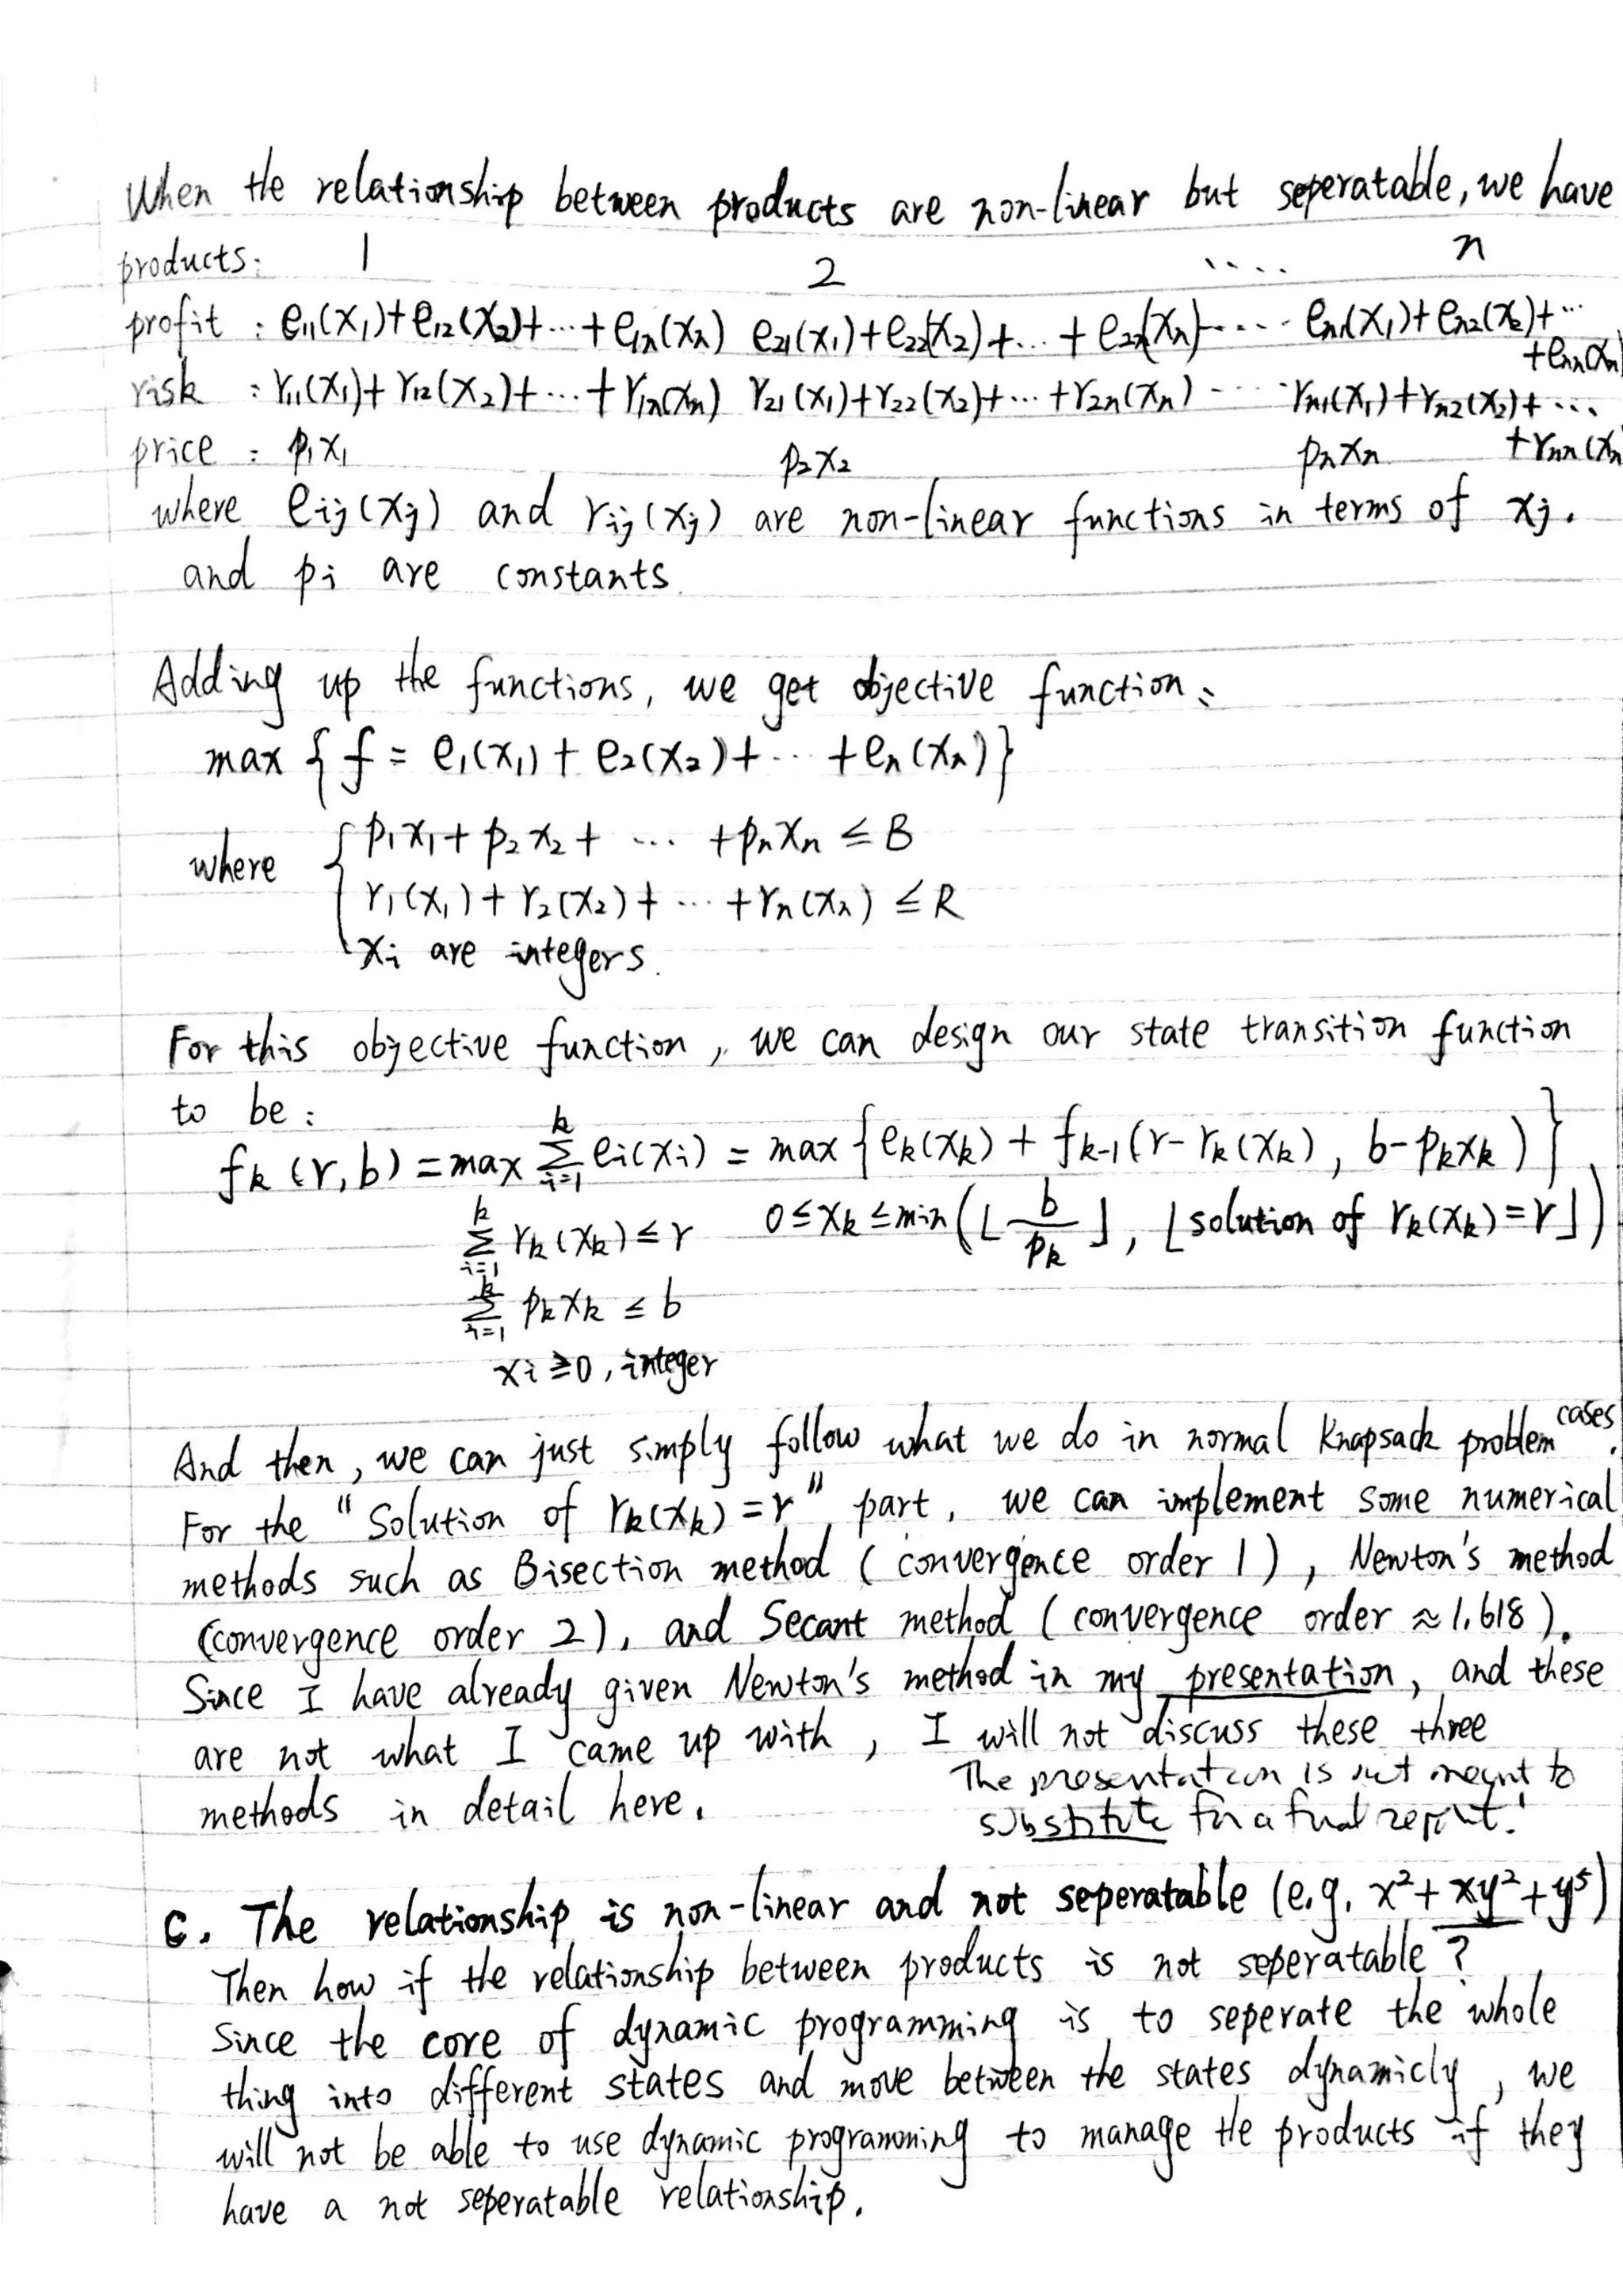 When the relationship between products are non-linear but seperatable, we have
products: 1 2 .... n
profit : e₁₁(x₁)+e₁₂(x₂)+···+e₁ₙ(xₙ) e₂₁(x₁)+e₂₂(x₂)+...+e₂ₙ(xₙ)---- eₙ₁(x₁)+eₙ₂(x₂)+···
+eₙₙ(xₙ)
risk : r₁₁(x₁)+r₁₂(x₂)+···+r₁ₙ(xₙ) r₂₁(x₁)+r₂₂(x₂)+···+r₂ₙ(xₙ) ---- rₙ₁(x₁)+rₙ₂(x₂)+...
+rₙₙ(xₙ
price : p₁x₁ p₂x₂ pₙxₙ
where eᵢⱼ(xⱼ) and rᵢⱼ(xⱼ) are non-linear functions in terms of xⱼ.
and pᵢ are constants.
Adding up the functions, we get objective function:
max { f = e₁(x₁) + e₂(x₂)+ ··· +eₙ(xₙ)}
where { p₁x₁+ p₂x₂+ ··· +pₙxₙ ≤ B
r₁(x₁)+ r₂(x₂)+ ··· +rₙ(xₙ) ≤ R
xᵢ are integers.
For this objective function, we can design our state transition function
to be:
fₖ(r,b) = max Σᵢ₌₁ᵏ eᵢ(xᵢ) = max {eₖ(xₖ) + fₖ₋₁(r-rₖ(xₖ), b-pₖxₖ)}
Σᵢ₌₁ᵏ rₖ(xₖ) ≤ r 0≤xₖ≤min(⌊b/pₖ⌋, ⌊solution of rₖ(xₖ)=r⌋)
Σᵢ₌₁ᵏ pₖxₖ ≤ b
xᵢ ≥0, integer
And then, we can just simply follow what we do in normal Knapsack problem cases.
For the "Solution of rₖ(xₖ)=r" part, we can implement some numerical
methods such as Bisection method (convergence order 1), Newton's method
(convergence order 2), and Secant method (convergence order ≈1.618).
Since I have already given Newton's method in my presentation, and these
are not what I came up with, I will not discuss these three
methods in detail here.
The presentation is not meant to
substitute for a final report!
C. The relationship is non-linear and not seperatable (e.g. x²+xy²+y⁵)
Then how if the relationship between products is not seperatable?
Since the core of dynamic programming is to seperate the whole
thing into different states and move between the states dynamicly, we
will not be able to use dynamic programming to manage the products if they
have a not seperatable relationship.